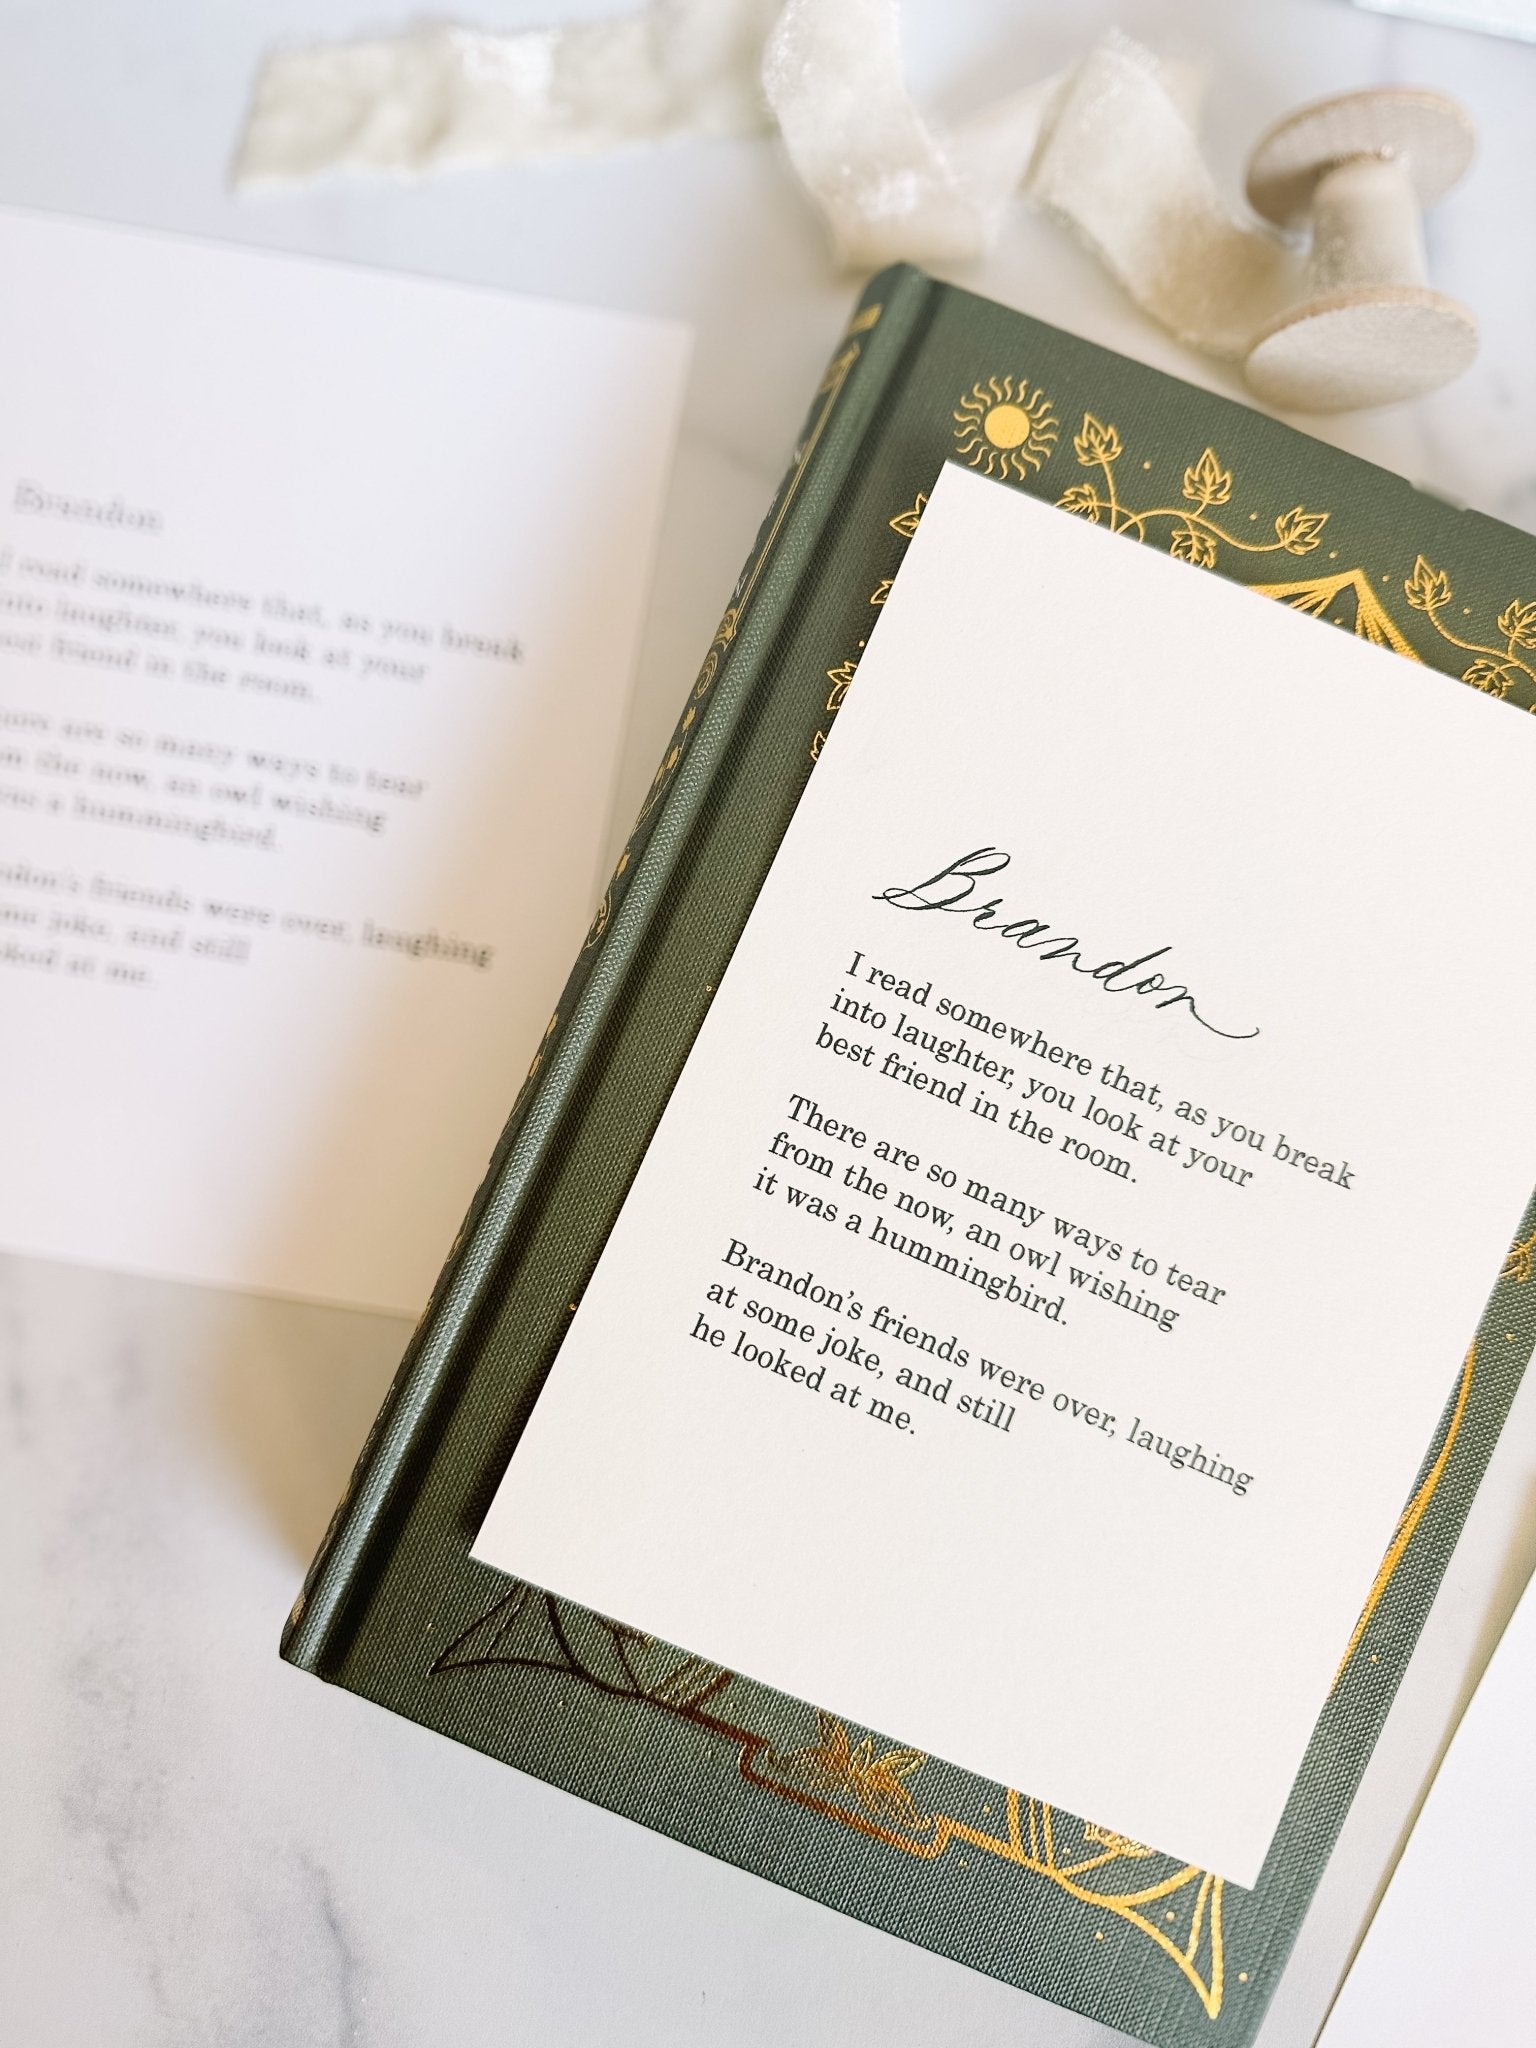 Brandon
I read somewhere that, as you break
into laughter, you look at your
best friend in the room.
There are so many ways to tear
from the now, an owl wishing
it was a hummingbird.
Brandon's friends were over, laughing
at some joke, and still
he looked at me.
Brandon
I read somewhere that, as you break
into laughter, you look at your
friend in the room.
are so many ways to tear
the now, an owl wishing
was a hummingbird.
friends were over, laughing
joke, and still
at me.